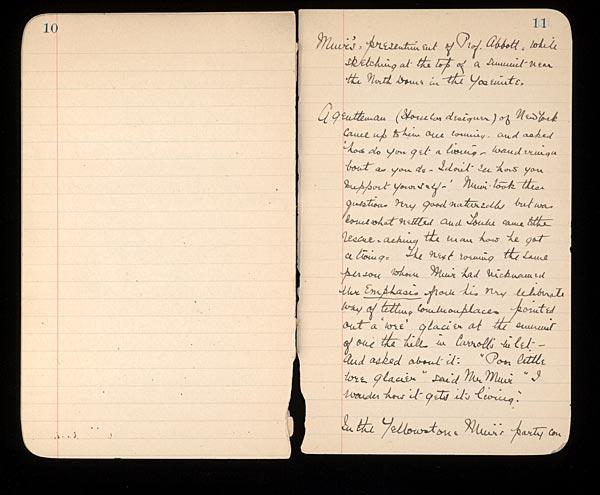 10
11
Muir's presentiment of Prof. Abbott. While
sketching at the top of a summit near
the North Dome in the Yosemite.
A gentleman (           designer) of New York
came up to him one evening and asked
'how do you get a living - wandering
bout as you do - I don't see how you
support yourself -' Muir took these
questions very good naturedly but was
somewhat nettled and             came to the
rescue - asking the man how he got
a living. The next morning the same
person whom Muir had nicknamed
Mr Emphasis from his very deliberate
way of telling commonplaces pointed
out a 'wee' glacier at the summit
of one the hills in Carrolls inlet -
And asked about it: "Poor little
wee glacier" said Mr Muir "I
wonder how it gets its living."
In the Yellowstone Muir's party con